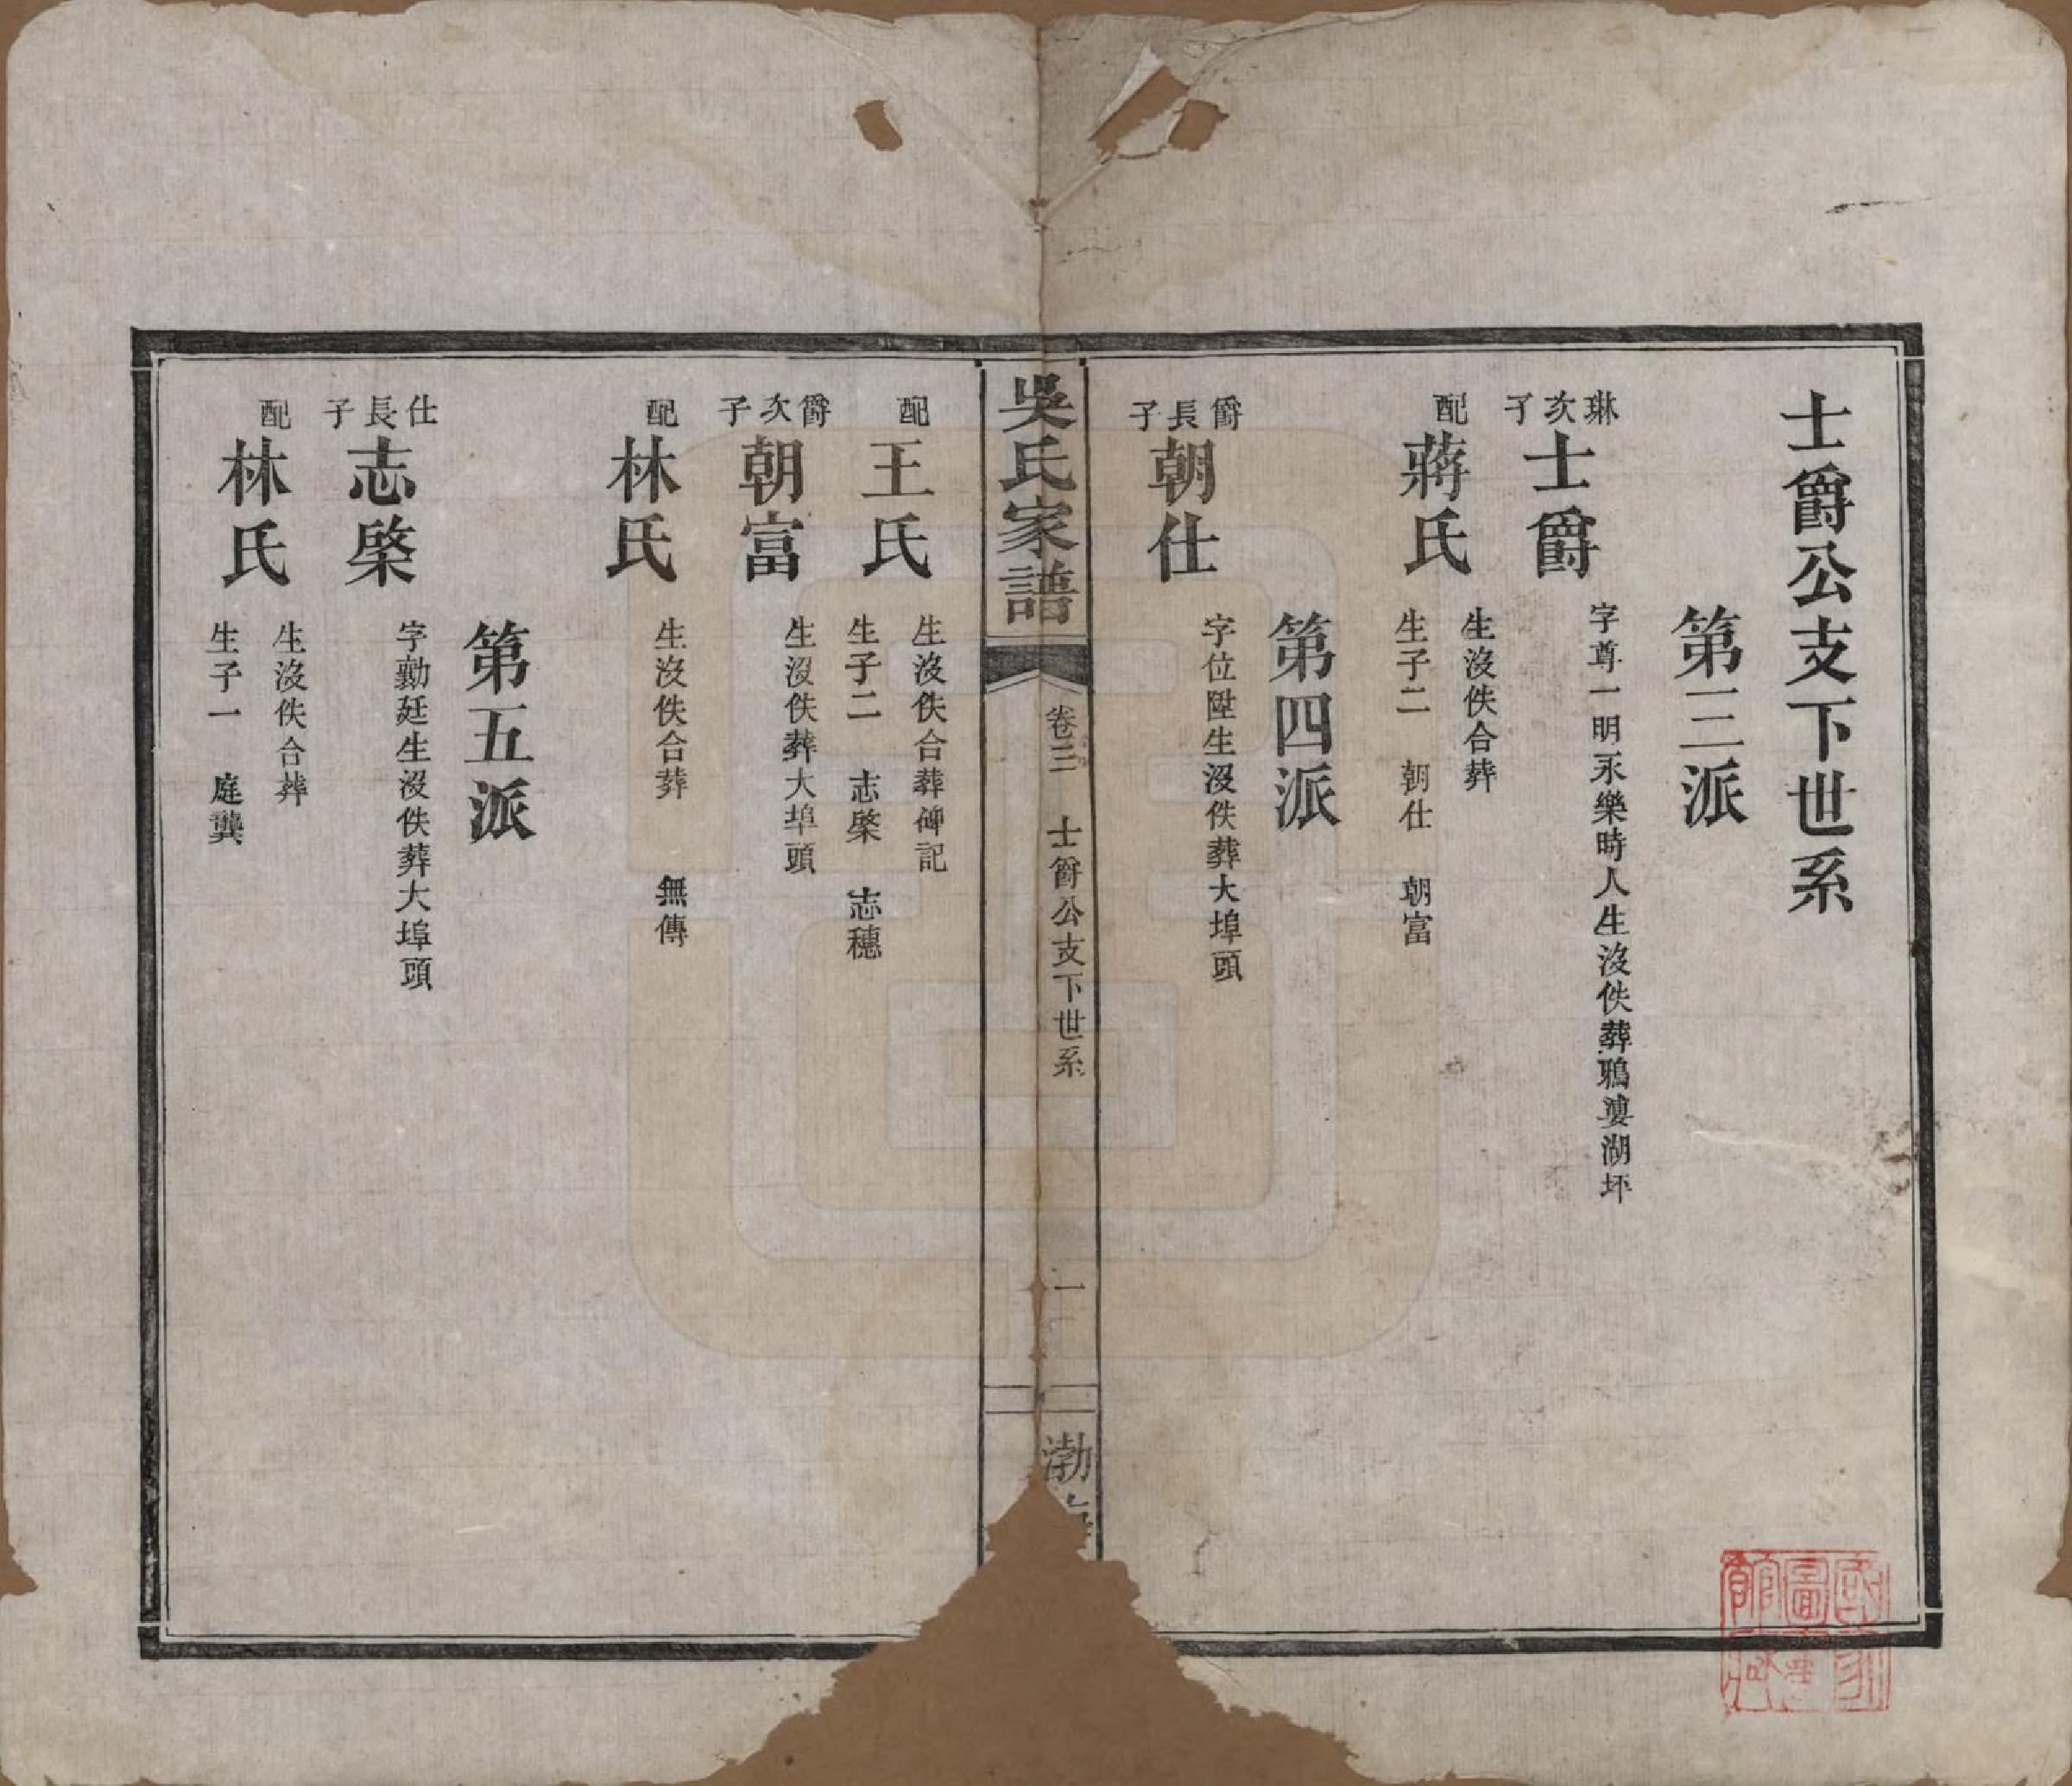 士爵公支下世系
第三派
琳次子
士爵
字尊一明永樂時人生沒佚葬鴉婁湖坏
配
蔣氏
生沒佚合葬
生子二 朝仕 朝富
第四派
爵長子
朝仕
字位陞生沒佚葬大埠頭
吳氏家譜
卷三 士爵公支下世系
一
渤
配
王氏
生沒佚合葬碑記
生子二 志棨 志穗
爵次子
朝富
生沒佚葬大埠頭
配
林氏
生沒佚合葬 無傳
第五派
仕長子
志棨
字勷廷生沒佚葬大埠頭
配
林氏
生沒佚合葬
生子一 庭龔